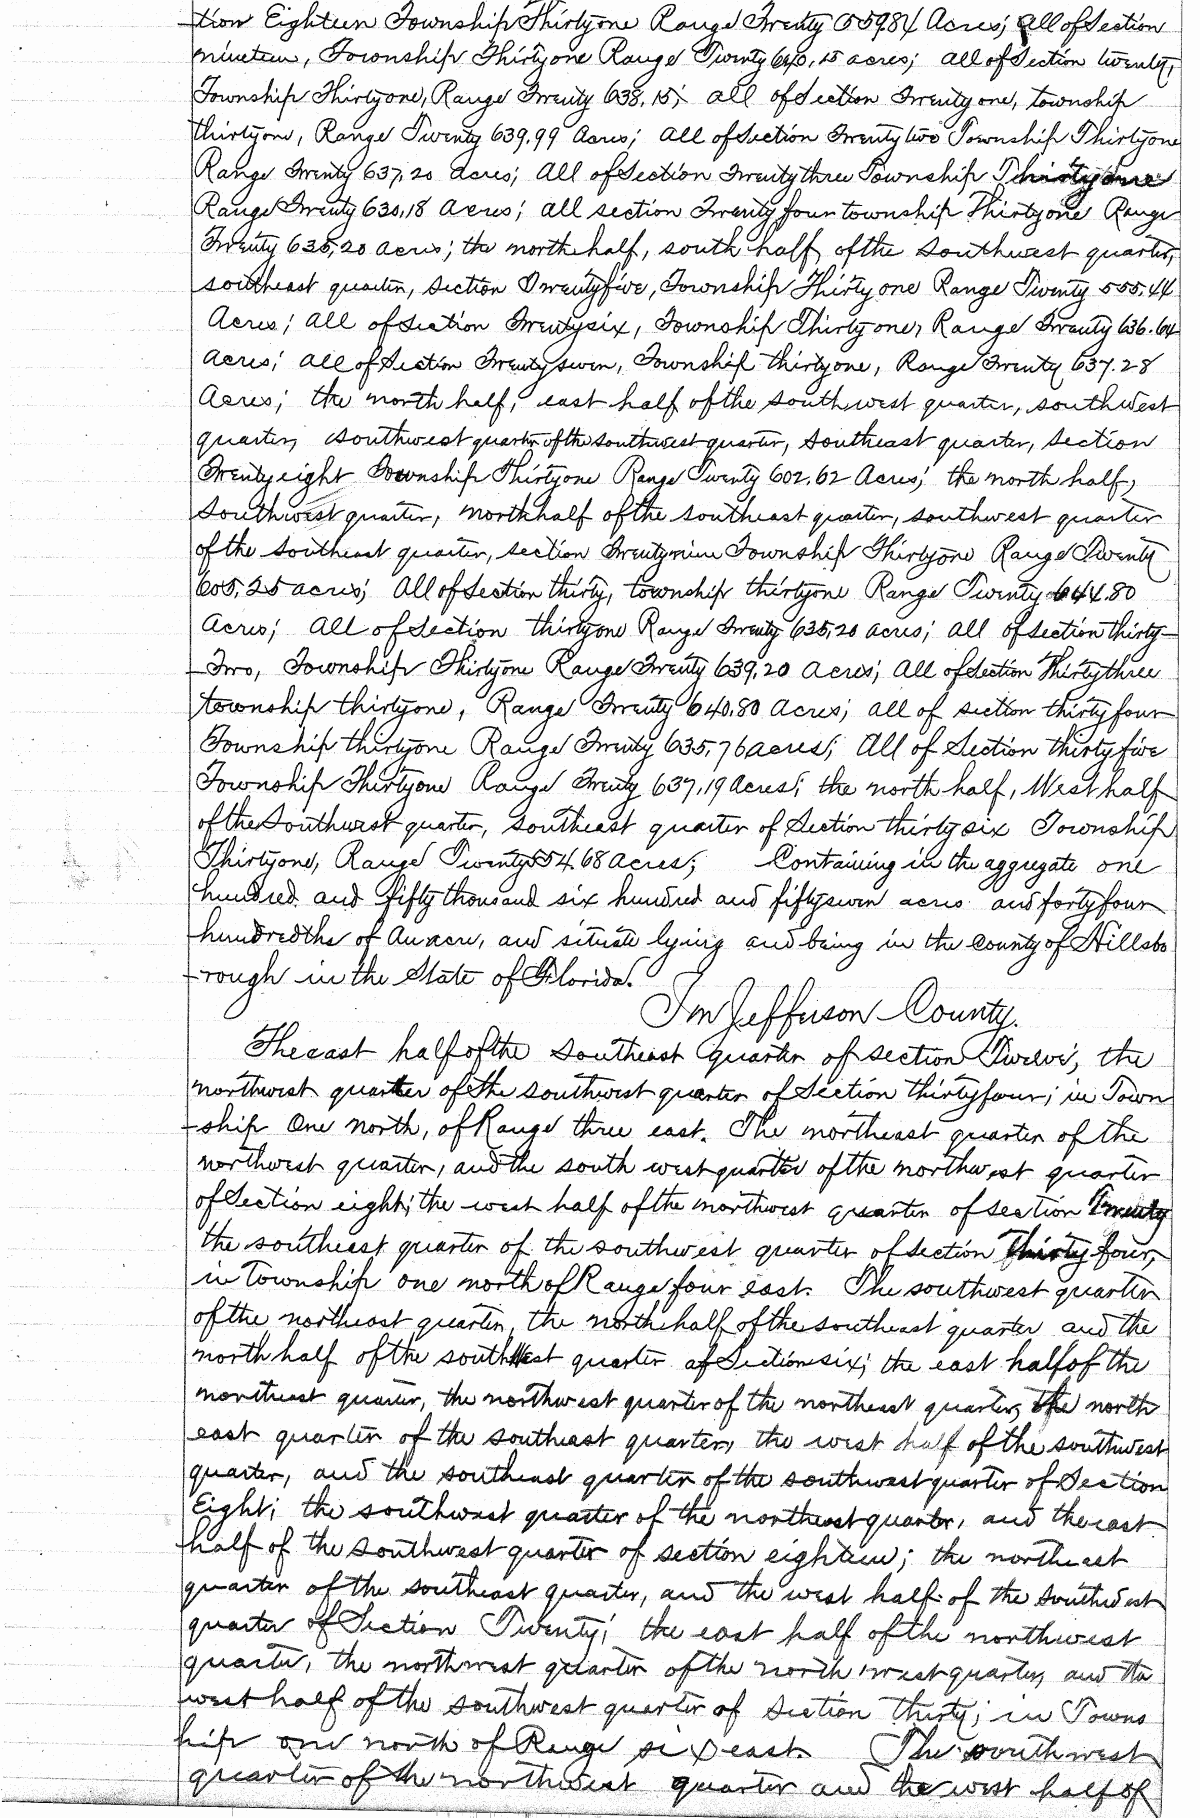 tion Eighteen Township Thirtyone Range Twenty 559.84 Acres; all of Section
nineteen, Township Thirtyone Range Twenty 640.15 acres; all of Section twenty,
Township Thirtyone, Range Twenty 638.15; all of Section Twentyone, township
thirtyone, Range Twenty 639.99 Acres; all of Section Twentytwo Township Thirtyone
Range Twenty 637.20 acres; all of Section Twentythree Township Thirtyone
Range Twenty 630.18 Acres; all section Twentyfour township Thirtyone Range
Twenty 635.20 acres; the north half, south half of the southwest quarter,
southeast quarter, section Twentyfive, Township Thirtyone Range Twenty 555.44
Acres; all of Section Twentysix, Township Thirtyone, Range Twenty 636.64
acres; all of Section Twentyseven, Township thirtyone, Range Twenty 637.28
Acres; the north half, east half of the southwest quarter, southwest
quarter, southwest quarter of the southwest quarter, southeast quarter, section
Twentyeight Township Thirtyone Range Twenty 602.62 Acres; the north half,
southwest quarter, north half of the southeast quarter, southwest quarter
of the southeast quarter, section twentynine Township Thirtyone Range Twenty
605.25 acres; all of Section thirty, township thirtyone Range Twenty 644.80
Acres; all of Section thirtyone Range Twenty 635.20 acres; all of section thirty-
Two, Township Thirtyone Range Twenty 639.20 acres; all of Section Thirtythree
township thirtyone, Range Twenty 640.80 acres; all of section thirtyfour
Township thirtyone Range Twenty 635.76 acres; all of Section thirtyfive
Township Thirtyone Range Twenty 637.19 Acres; the north half, West half
of the Southwest quarter, southeast quarter of Section thirtysix Township
Thirtyone, Range Twenty 554.68 acres; Containing in the aggregate one
hundred and fifty thousand six hundred and fiftyseven acres and fortyfour
hundredths of an acre, and situate lying and being in the County of Hillsbo
rough in the State of Florida.
In Jefferson County.
The east half of the southeast quarter of section Twelve, the
northwest quarter of the southwest quarter of Section thirtyfour; in Town
ship One north, of Range three east. The northeast quarter of the
northwest quarter, and the south west quarter of the northwest quarter
of Section eight; the west half of the northwest quarter of section Twenty
the southeast quarter of the southwest quarter of Section Thirty four,
in Township one north of Range four east. The southwest quarter
of the northeast quarter, the north half of the southeast quarter and the
north half of the southwest quarter of Section six; the east half of the
northeast quarter, the northwest quarter of the northeast quarter, the north
east quarter of the southeast quarter, the west half of the southwest
quarter, and the southeast quarter of the southwest quarter of Section
Eight; the southwest quarter of the northeast quarter, and the east
half of the southwest quarter of section eighteen; the northeast
quarter of the southeast quarter, and the west half of the southwest
quarter of Section Twenty; the east half of the northwest
quarter, the northwest quarter of the north west quarter, and the
west half of the southwest quarter of Section thirty; in Towns
hip one north of Range six east. The southwest
quarter of the northwest quarter and the west half of